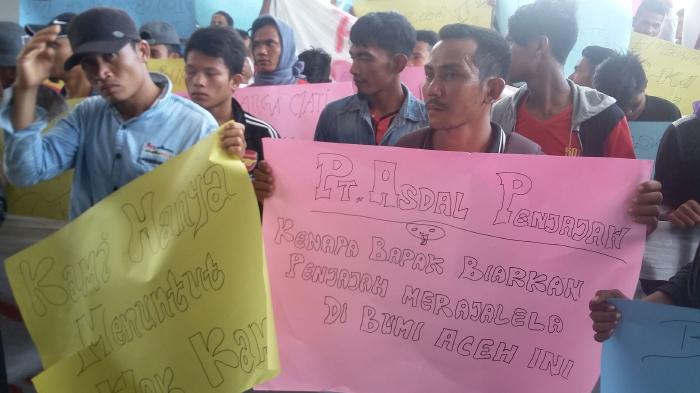 Kami Hanya
Menuntut
Hak Kami
PT. ASDAL PENJAJAH
KENAPA BAPAK BIARKAN
PENJAJAH MERAJALELA
DI BUMI ACEH INI